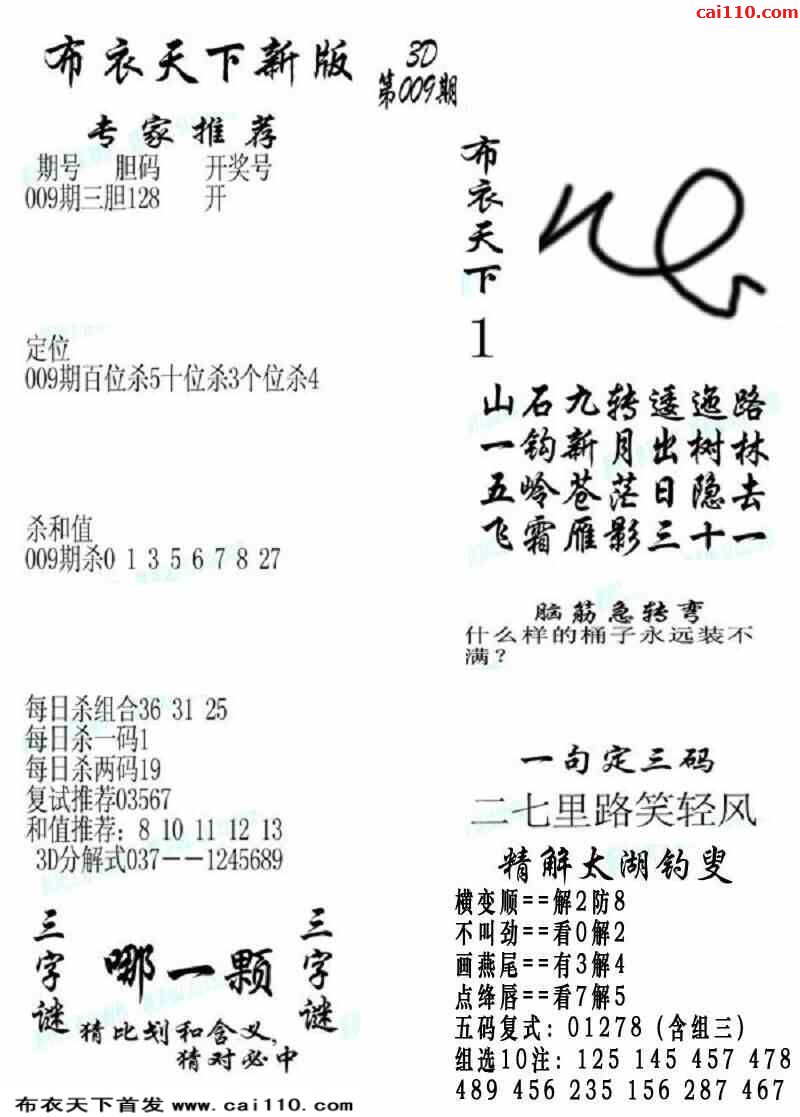 cai110.com
布衣天下新版
3D
第009期
专家推荐
期号 胆码 开奖号
009期三胆128 开
定位
009期百位杀5十位杀3个位杀4
杀和值
009期杀0 1 3 5 6 7 8 27
每日杀组合36 31 25
每日杀一码1
每日杀两码19
复试推荐03567
和值推荐：8 10 11 12 13
3D分解式037——1245689
三字谜
哪一颗
三字谜
猜比划和含义，
猜对必中
布衣天下
1
山石九转逶迤路
一钩新月出树林
五岭苍茫日隐去
飞霜雁影三十一
脑筋急转弯
什么样的桶子永远装不
满？
一句定三码
二七里路笑轻风
精解太湖钓叟
横变顺==解2防8
不叫劲==看0解2
画燕尾==有3解4
点绛唇==看7解5
五码复式：01278（含组三）
组选10注：125 145 457 478
489 456 235 156 287 467
布衣天下首发 www.cai110.com